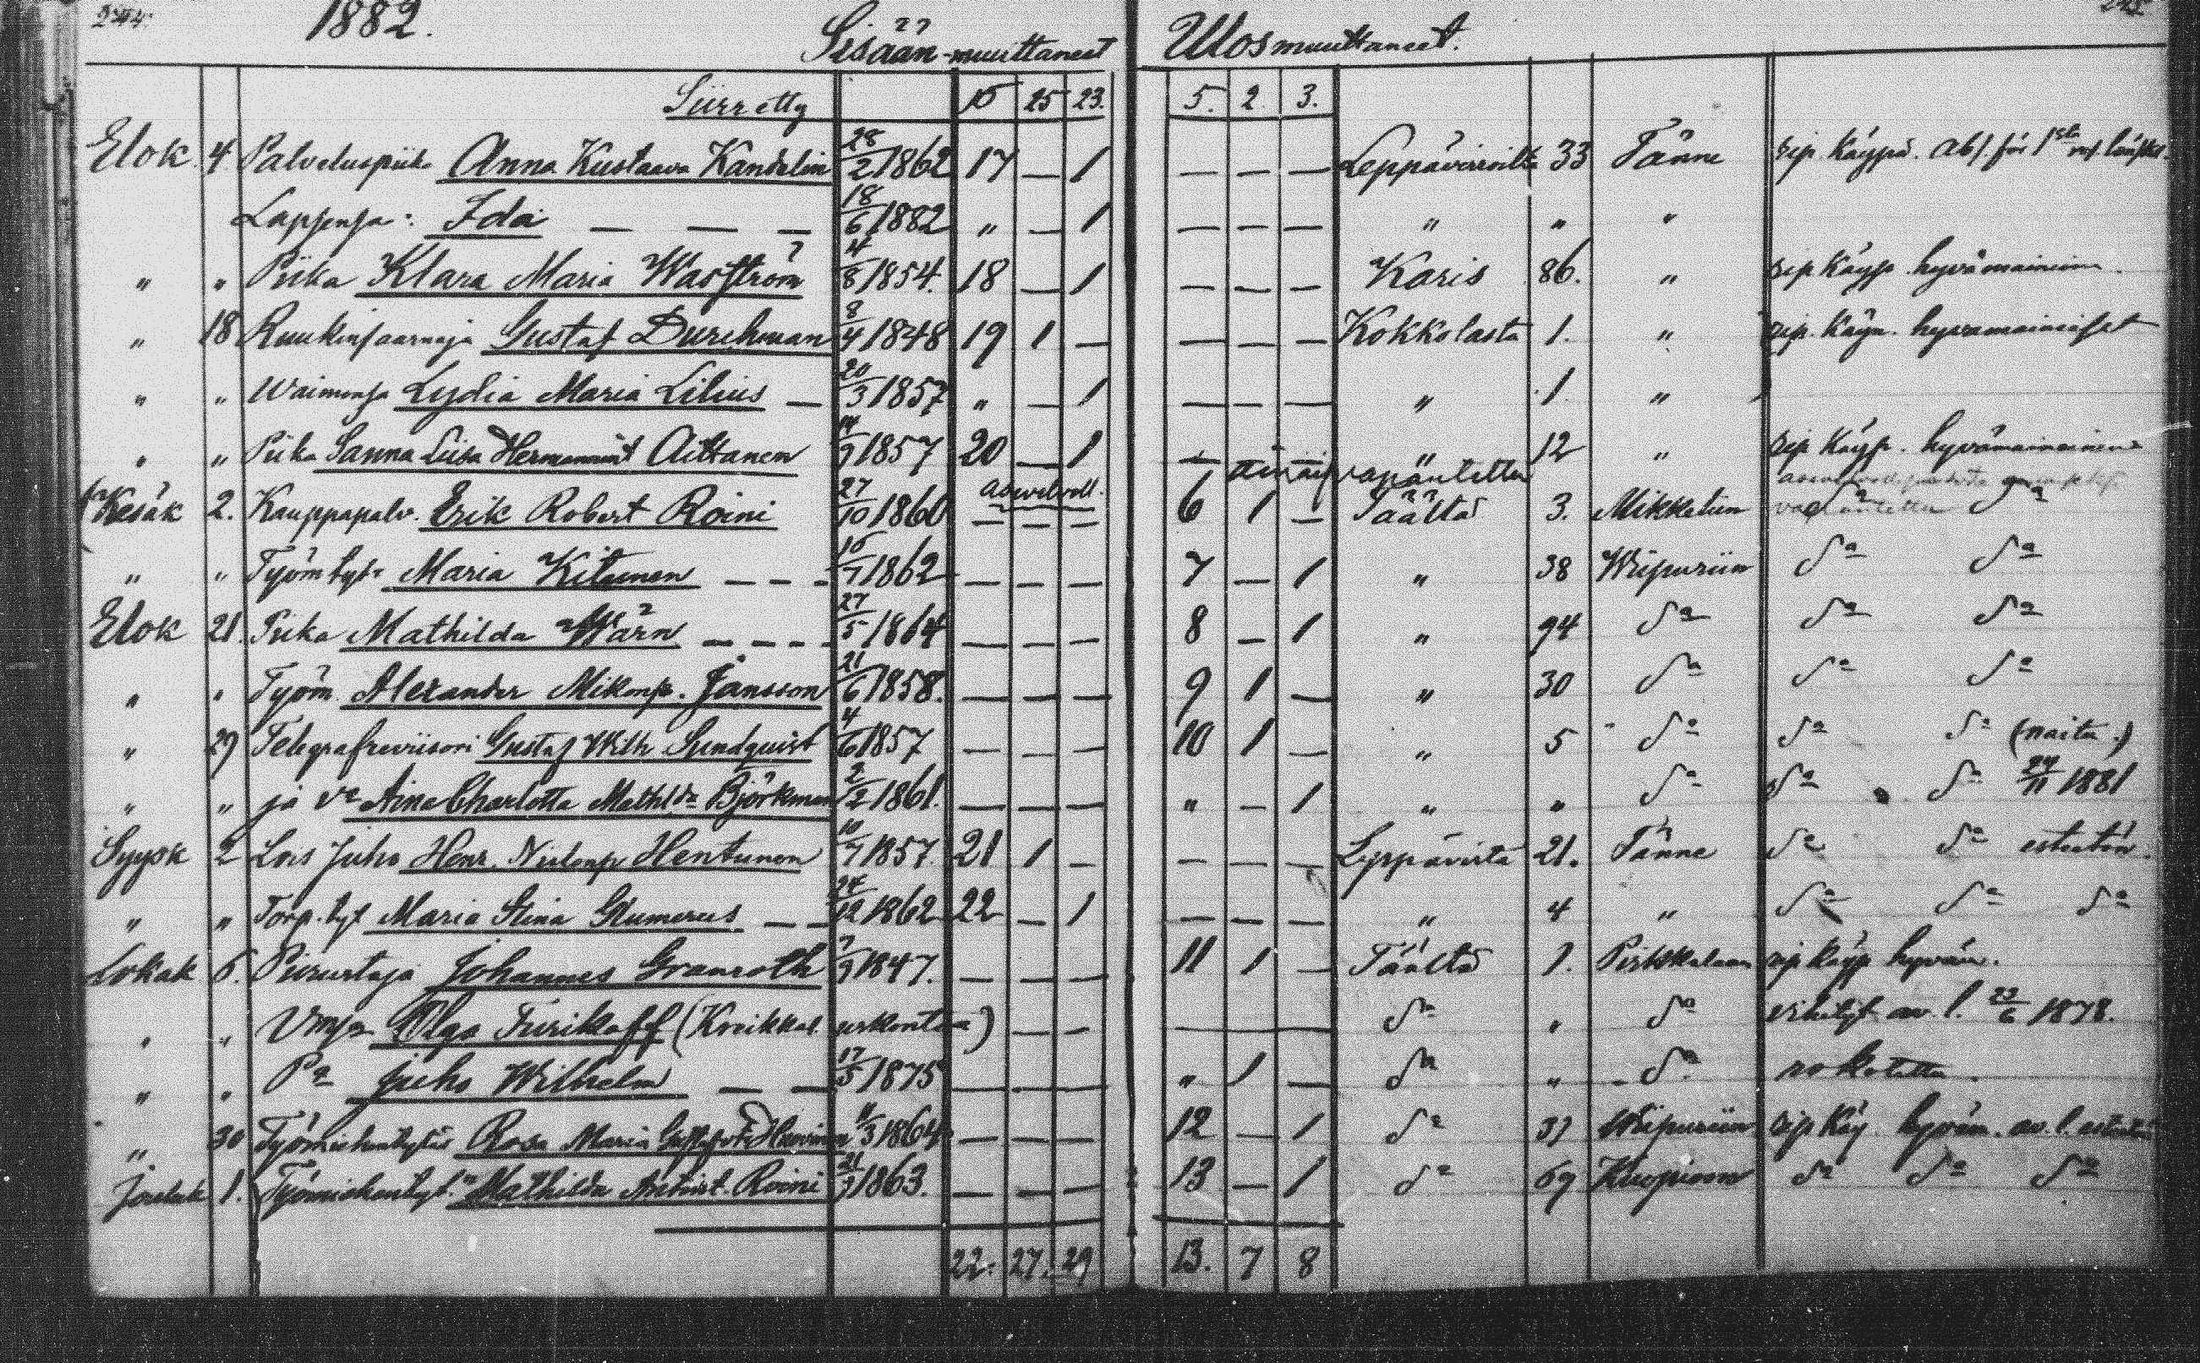 244. 1882. Sisään-muuttaneet Ulosmuuttaneet. 245
Siirretty 15 25 23. 5. 2 3.
Elok 4. Palveluspiika Anna Kustaava Kandelin 28/2 1862 17 — 1 — — — Leppävirroilta 33 Tänne rip. käypä.
Lapsensa: Ida — — — 18/6 1882 „ — 1 — — — „ „ „
„ „ Piika Klara Maria Waström 4/8 1854. 18 — 1 — — — Karis 86. „ rip käyp. hyvämaineinen.
„ 18 Ruukinsaarnaja Gustaf Durchman 8/4 1848 19 1 — — — — Kokkolasta 1. „ rip. käyn. hyvämaineiset
„ „ Waimonsa Lydia Maria Lilius — 20/3 1857 „ — 1 — — — „ 1 „
„ „ Piika Sanna Liisa Aittanen 14/9 1857 20 — 1 — — — „ 12 „ rip käyp. hyvämaineinen
(Kesäk 2. Kauppapalv. Erik Robert Roini 27/10 1860 — — — 6 1 — Täältä 3. Mikkeliin dº dº
„ „ Työm.tyt. Maria Kitunen — — — 15/7 1862 — — — 7 — 1 „ 38 Wiipuriin dº dº
Elok 21. Piika Mathilda Wärn — — — 27/5 1864 — — — 8 — 1 „ 94 dº dº dº
„ „ Työm. Alexander Mikonp. Jansson 21/6 1858. — — — 9 1 — „ 30 dº dº dº
„ 29 Telegrafreviisori Gustaf Wilh Sundquist 4/6 1857 — — — 10 1 — „ 5 dº dº dº (naitu.)
„ „ ja vº Aina Charlotta Mathilda Björkman 2/2 1861. — — — „ — 1 „ „ dº dº dº 24/11 1881
Syysk 2 Lois Juho Henr. Hentunen 10/7 1857. 21 1 — — — — Leppävirta 21. Tänne dº dº esteetön.
„ „ Torp. tyt Maria Stina Glumerus — — 24/12 1862 22 — 1 — — — „ 4 „ dº dº dº
Lokak 6. Piirustaja Johannes Granroth 7/9 1847. — — — 11 1 — Täältä 1. Pirkkalaan rip käyp hyväm.
„ „ Vmsa Olga Turikoff (Kreikkal. uskontoa) — — — dº „ dº vihityt av. l. 23/6 1878.
„ „ Pª Juho Wilhelm — — 17/5 1875 — — — „ 1 — dº „ dº rokotettu.
„ 30 Rosa Maria 11/3 1864 — — — 12 — 1 dº 37 Wiipuriin rip käy. hyväm. av. l.
Jouluk 1. Työmiehentyt. Mathilda Antint. Roini 21/9 1863. — — — 13 — 1 dº 69 Kuopioon dº dº dº
22. 27. 29 13. 7 8